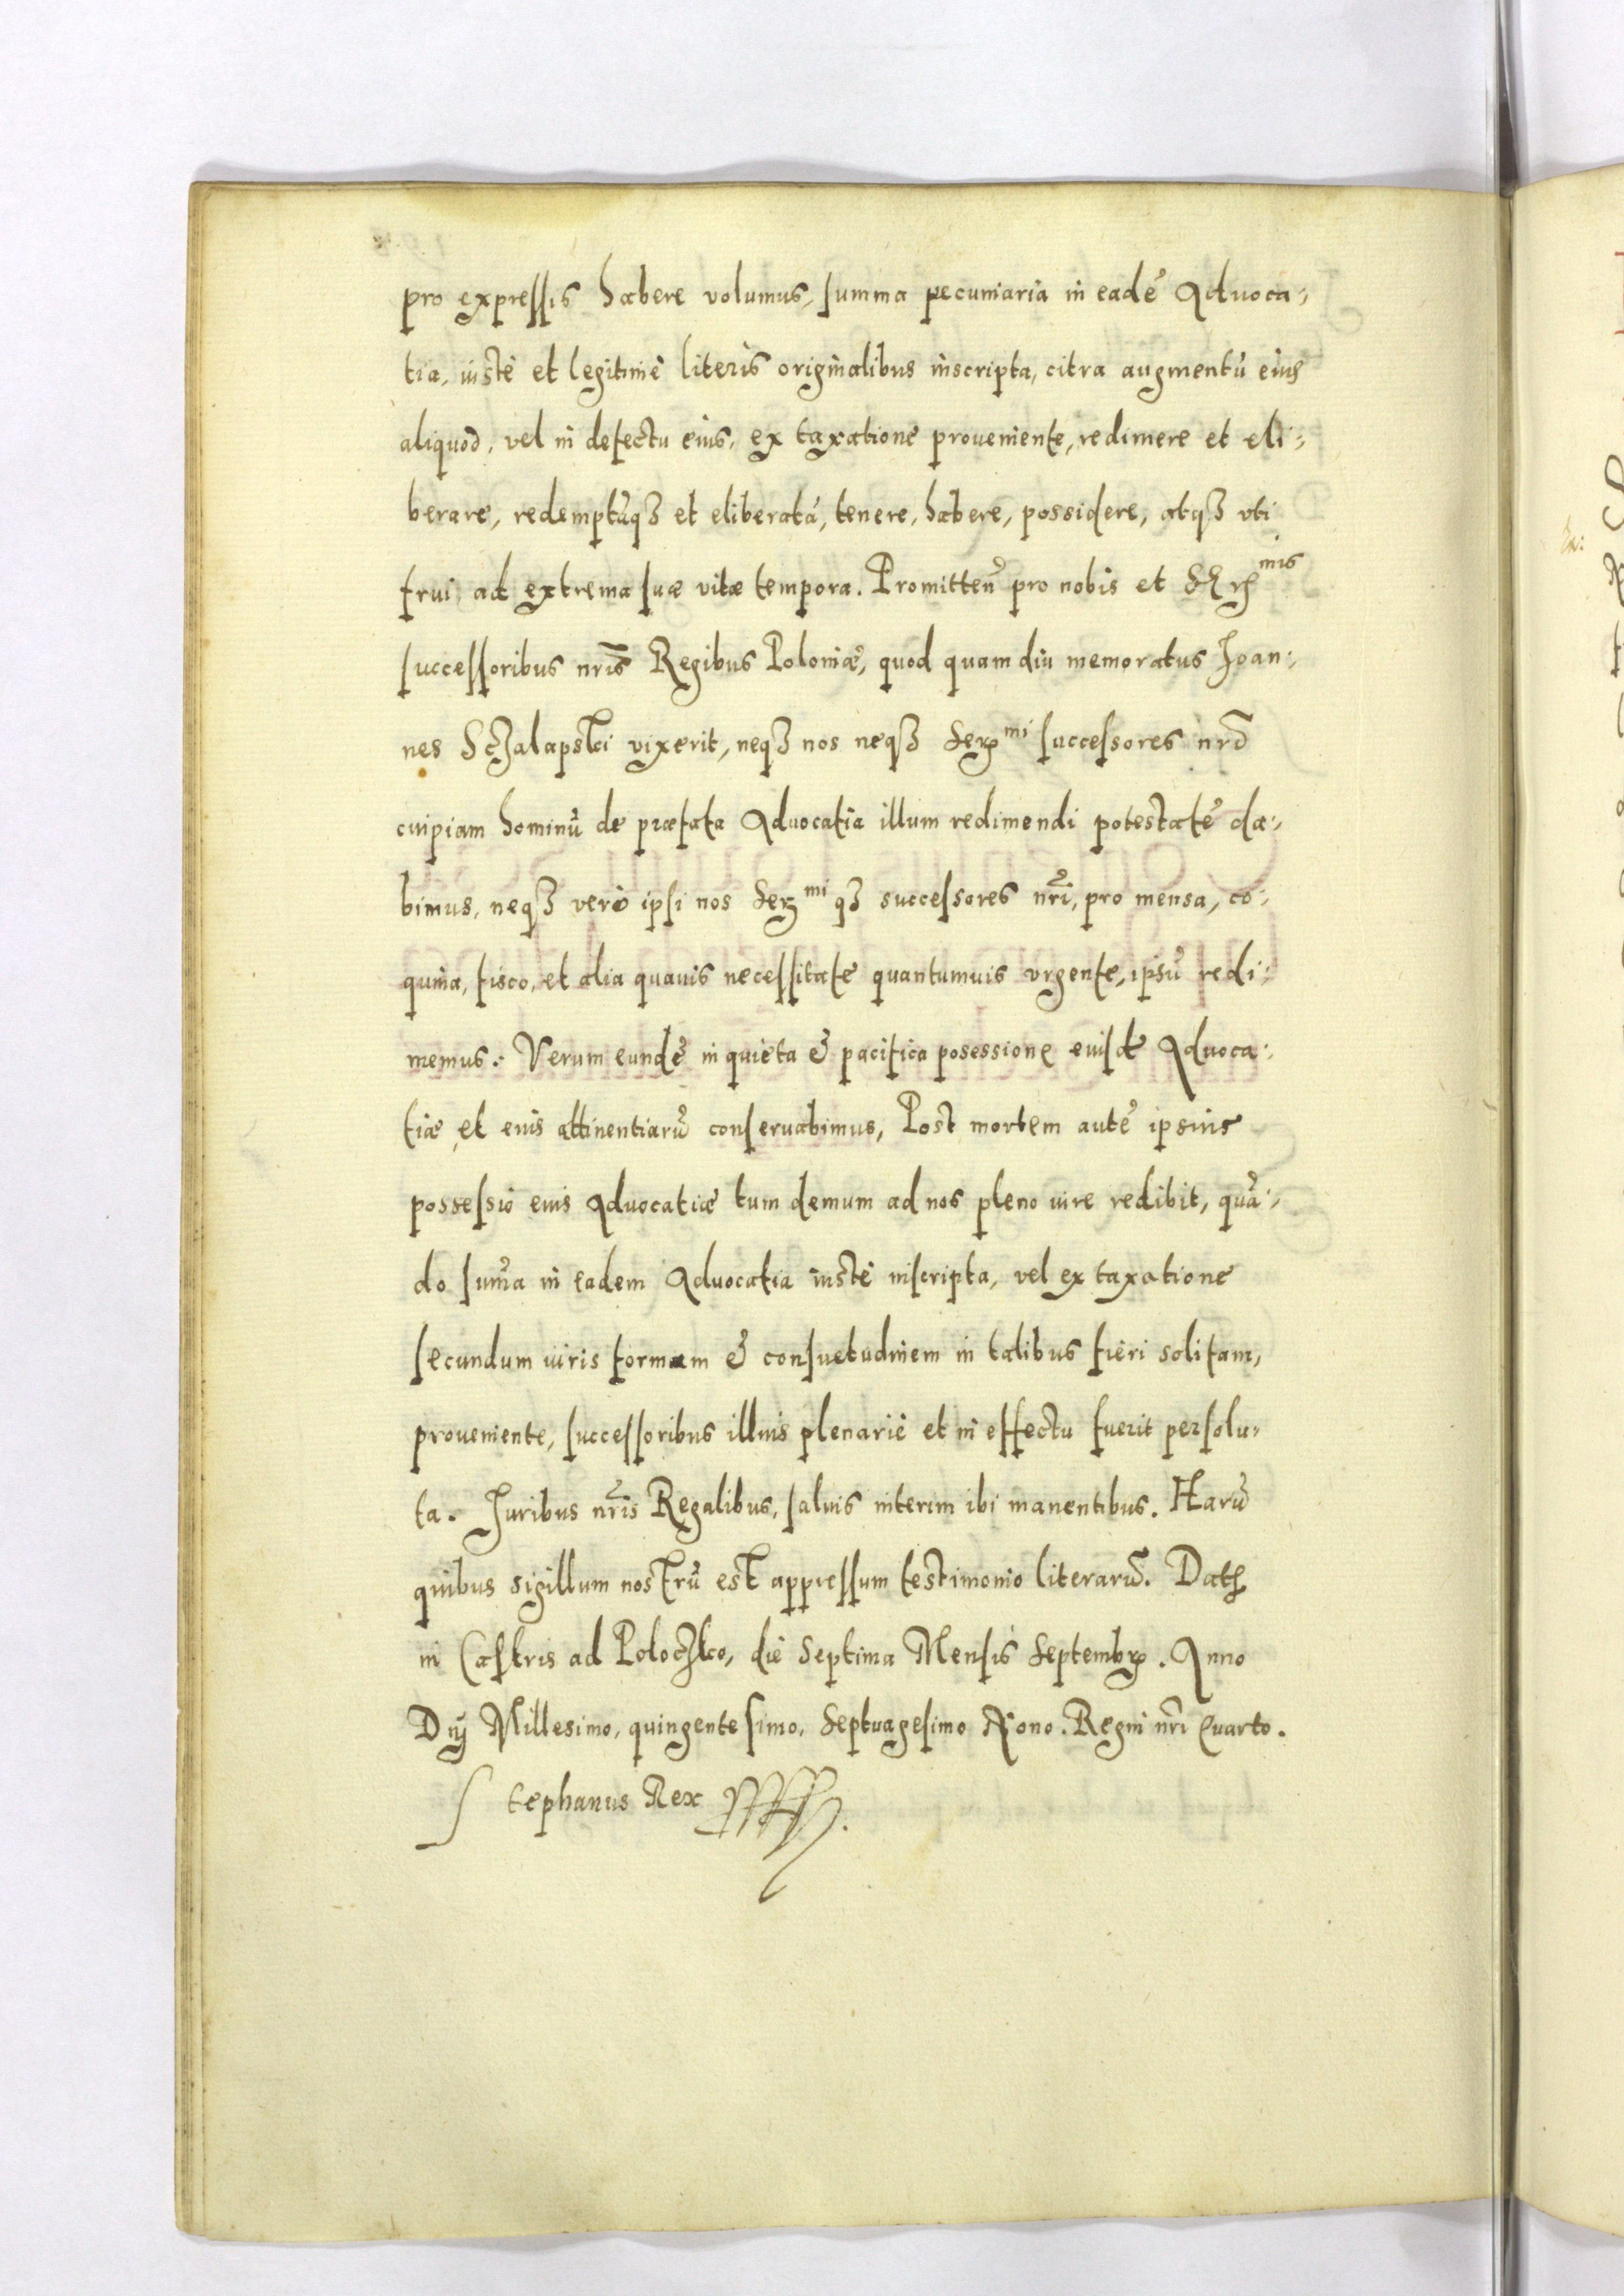 pro expressis habere volumus, summa pecuniaria in eadē Aduoca:
tia, iustè et legitimè literis originalibus inscripta, citra augmentū eius
aliquod, vel in defectu eius, ex taxatione proueniente, redimere et eli:
berare, redemptāq3 et eliberatā, tenere, habere, possidere, atq3 vti
frui ad extrema suæ vitæ tempora. Promitten̄ pro nobis et mis
successoribus nr̄is Regibus Poloniæ, quod quam diu memoratus Joan:
nes Sczalapski vixerit, neq3 nos neq3 Ser mi successores nrī
cuipiam hominū de præfata Aduocatia illum redimendi potestatē da:
bimus, neq3 verò ipsi nos Ser mi q3 successores nrī, pro mensa, co:
quina, fisco, et alia quauis necessitate quantumuis vrgente, ipsū redi:
memus: Verum eundē in quieta & pacifica posessione eiusdē Aduoca:
tiæ et eius attinentiarū conseruabimus, Post mortem autē ipsius
possessio eius Aduocatiæ tum demum ad nos pleno iure redibit, quā:
do sum̄a in eadem Aduocatia iustè inscripta, vel ex taxatione
secundum iuris formam & consuetudinem in talibus fieri solitam,
proueniente, successoribus illius plenariè et in effectu fuerit persolu:
ta. Juribus nr̄is Regalibus, saluis interim ibi manentibus. Harū
quibus sigillum nostrū est appressum testimonio literarū. Dat
in Castris ad Poloczko, die Septima Mensis Septembr. Anno
Dnj Millesimo, quingentesimo, Septuagesimo Nono. Regni nrī Quarto.
Stephanus Rex